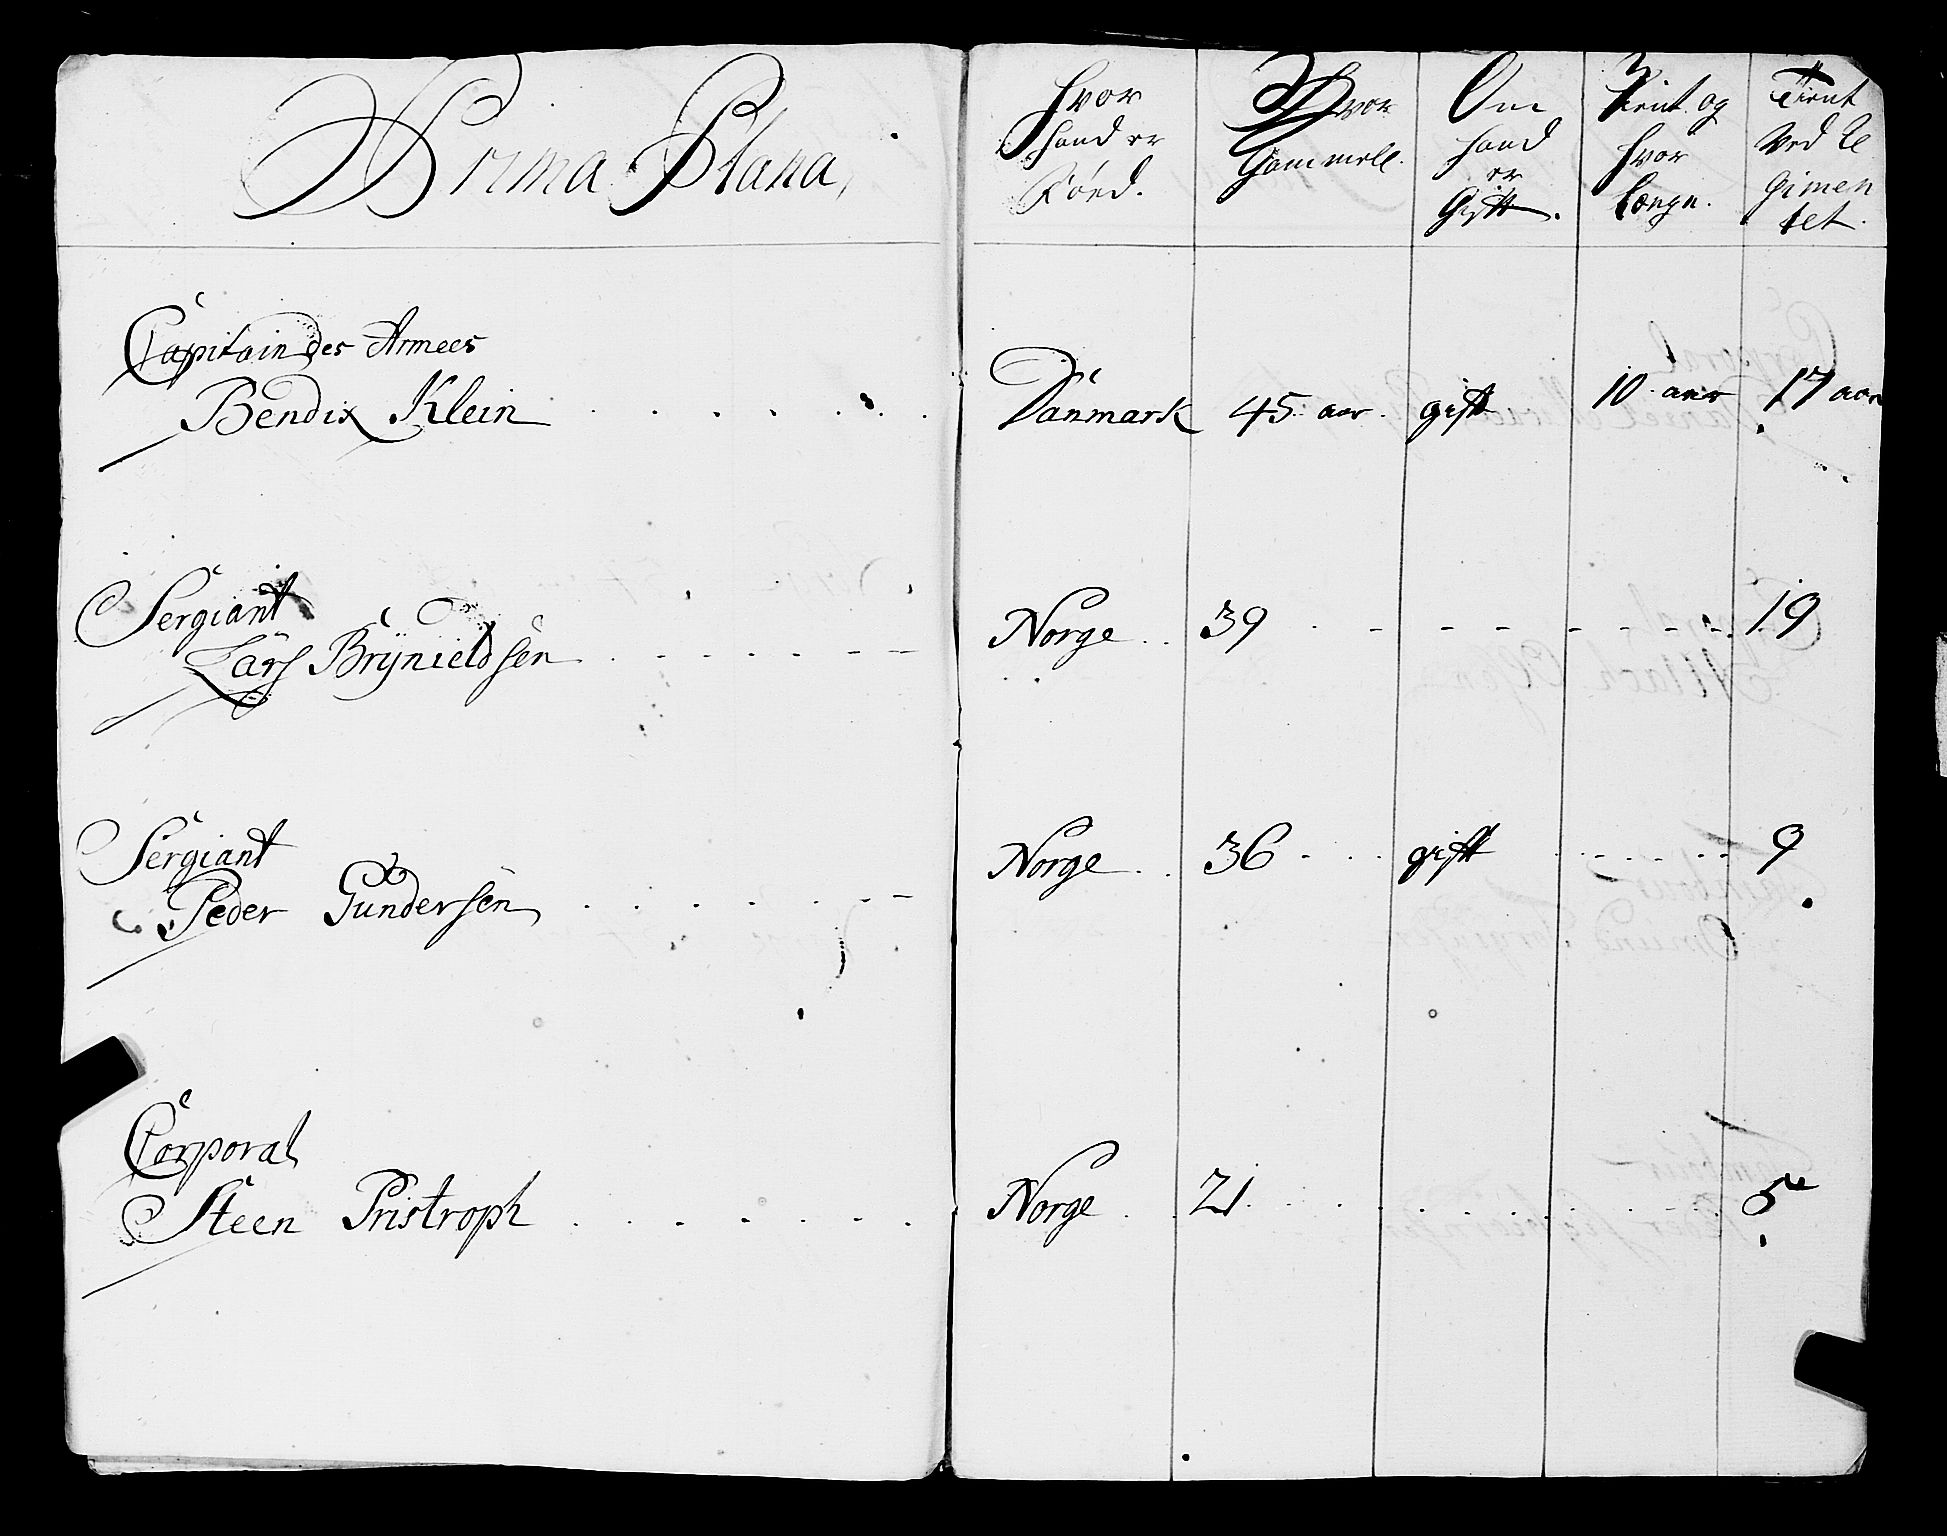 Prima Plana,
Hvor
hand er
Fôed.
Hvor
Gammell.
Om
hand
er
Gift.
Tient og
hvor
længe.
Tient
Ved Re
gimen
tet.
Capitain des Armees
Bendix Klein Danmark 45 aar. gift 10 aar 17 aar
Sergiant
Lars Brÿnieldsen Norge 39 19
Sergiant
Peder Gundersen Norge 36 gift 9
Corporal
Steen Pristroph Norge 21 5